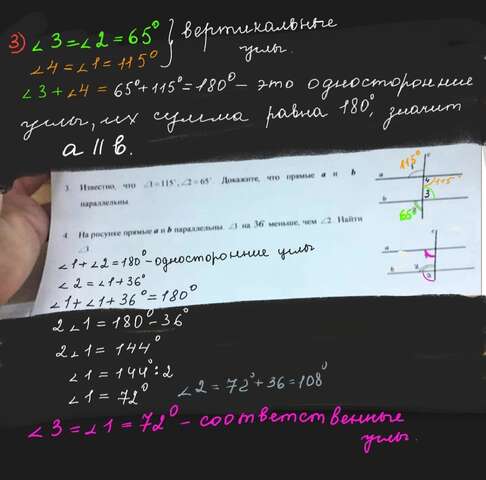 3) ∠3=∠2=65° } вертикальные
∠4=∠1=115° углы.
∠3+∠4=65°+115°=180° – это односторонние
углы, их сумма равна 180°, значит
a || b.
3. Известно, что ∠1=115°, ∠2=65°. Докажите, что прямые a и b
параллельны.
115°
c
a
4
115°
3
b
65°
4. На рисунке прямые a и b параллельны. ∠1 на 36° меньше, чем ∠2. Найти
∠3.
c
a
b
∠1+∠2=180° – односторонние углы
∠2=∠1+36°
∠1+∠1+36°=180°
2∠1=180°-36°
2∠1=144°
∠1=144°:2
∠1=72°
∠2=72°+36=108°
∠3=∠1=72° – соответственные
углы.